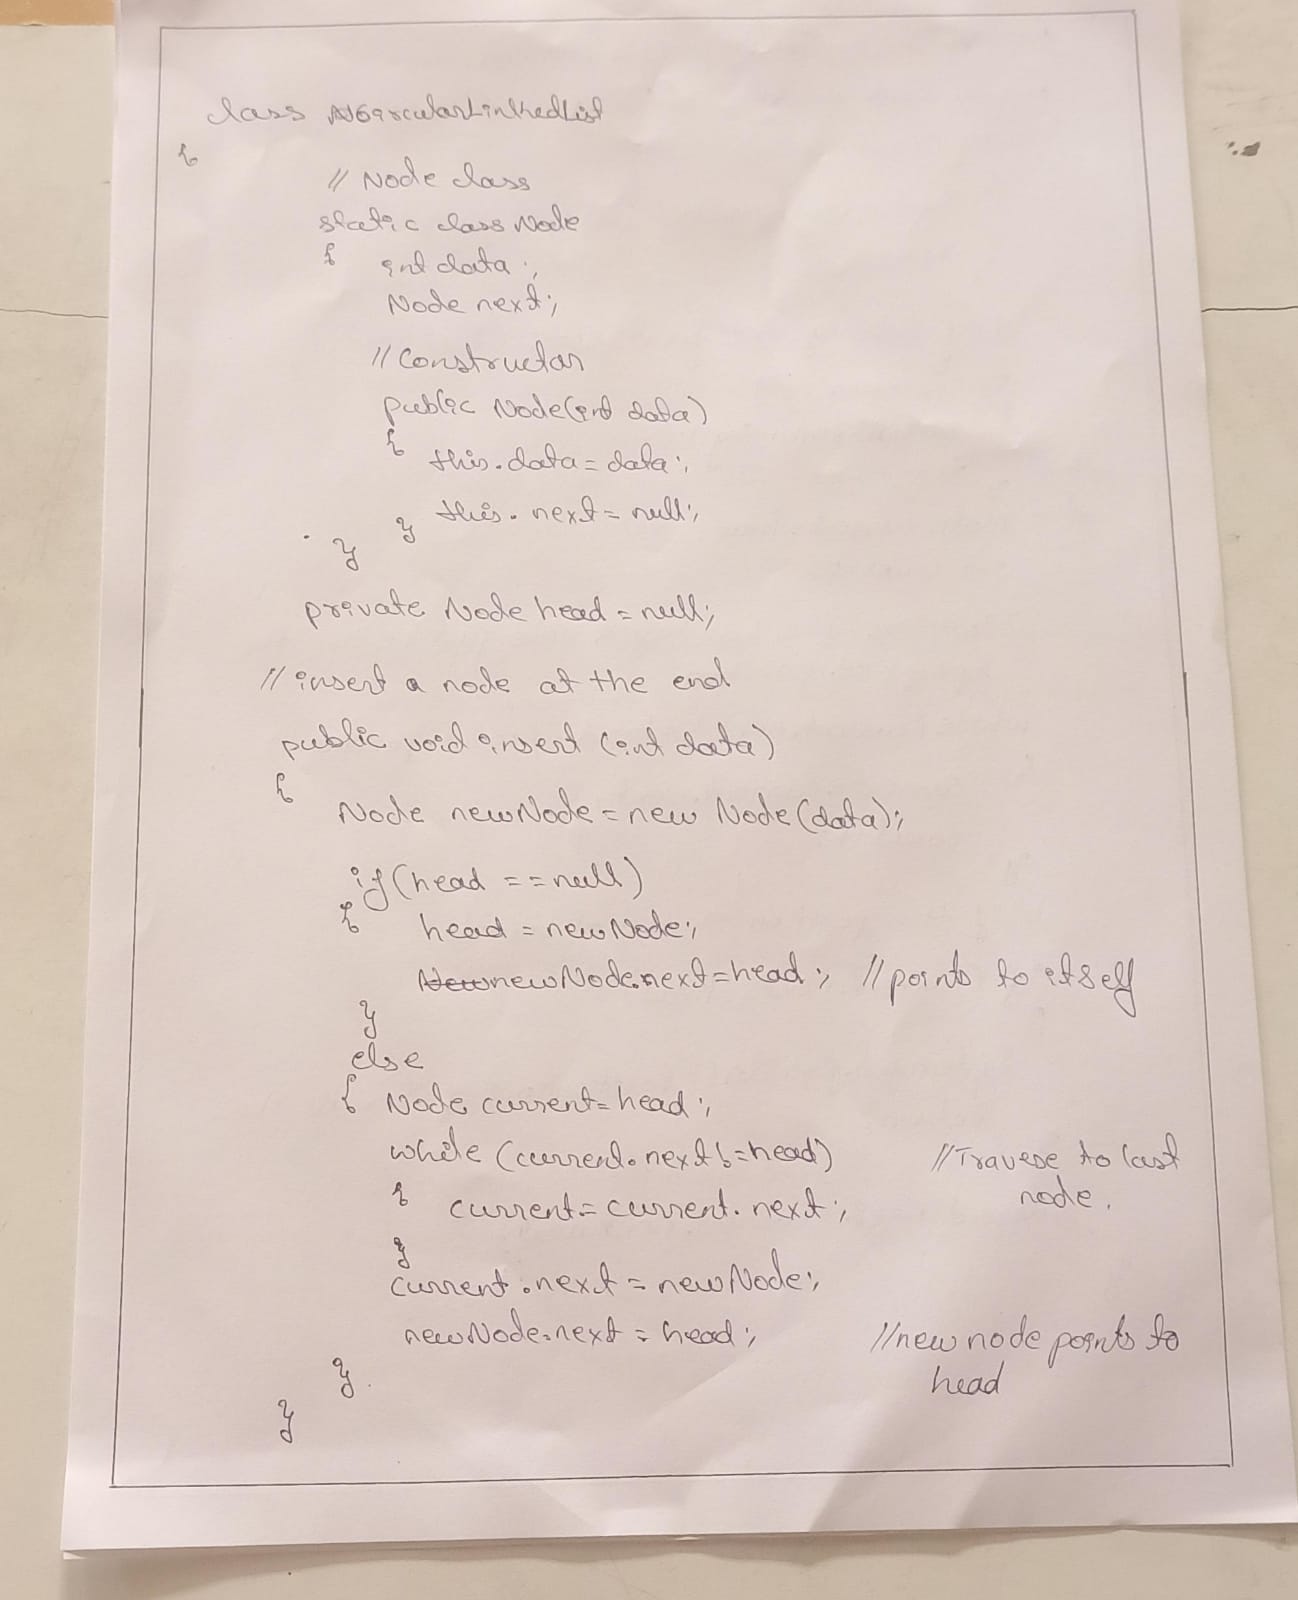 class CircularLinkedList
{
// Node class
static class Node
{ int data;
Node next;
// Constructor
public Node(int data)
{ this.data=data;
this.next=null;
}
}
private Node head = null;
// insert a node at the end
public void insert (int data)
{
Node newNode = new Node(data);
if(head == null)
{ head = newNode;
newNode.next=head; // points to itself
}
else
{ Node current=head;
while (current.next!=head) //Travese to last
node.
{ current=current.next;
}
current.next = newNode;
newNode.next = head; //new node points to
head
}
}